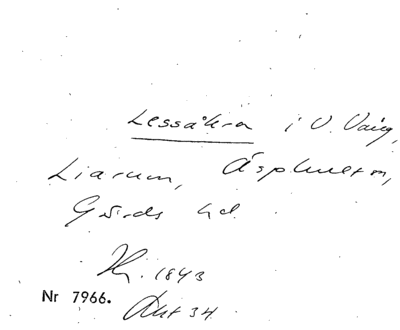 Lessåkra i V. Vång,
Liarum, Äsphult sn,
Gärds hd.
1843
Nr 7966.
Akt 34.